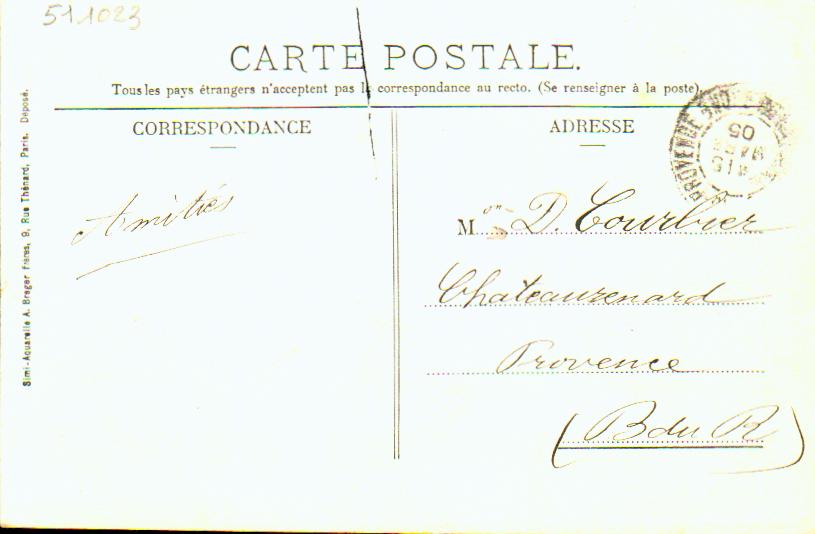 511023
CARTE POSTALE.
Tous les pays étrangers n'acceptent pas la correspondance au recto. (Se renseigner à la poste).
CORRESPONDANCE
ADRESSE
Amitiés
Mon D. Courbier
Chateaurenard
Provence
(B du R)
Simi-Aquarelle A. Breger frères, 9, Rue Thénard, Paris. Déposé.
PROVENCE
4 15
05